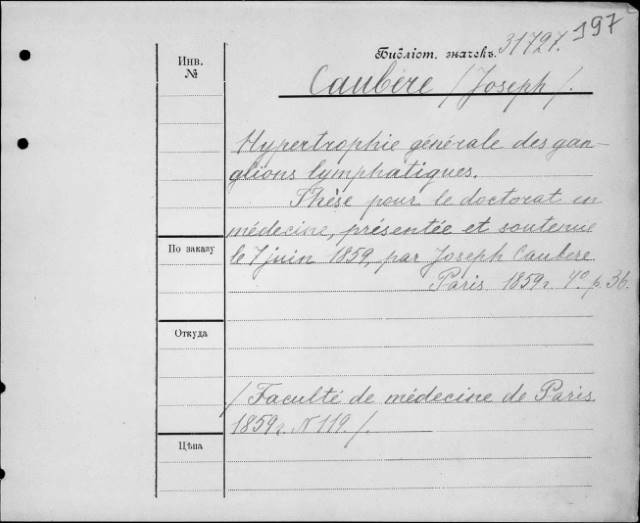 197
Библіот. значекъ. 31727.
Инв.
№
Caubère /Joseph/.
Hypertrophie générale des gan-
glions lymphatiques.
Thèse pour le doctorat en
médecine, présentée et soutenue
le 7 juin 1859, par Joseph Caubère.
Paris 1859г. 4º. p. 36.
По заказу
Откуда
/Faculté de médecine de Paris
1859г. N 119./.
Цѣна